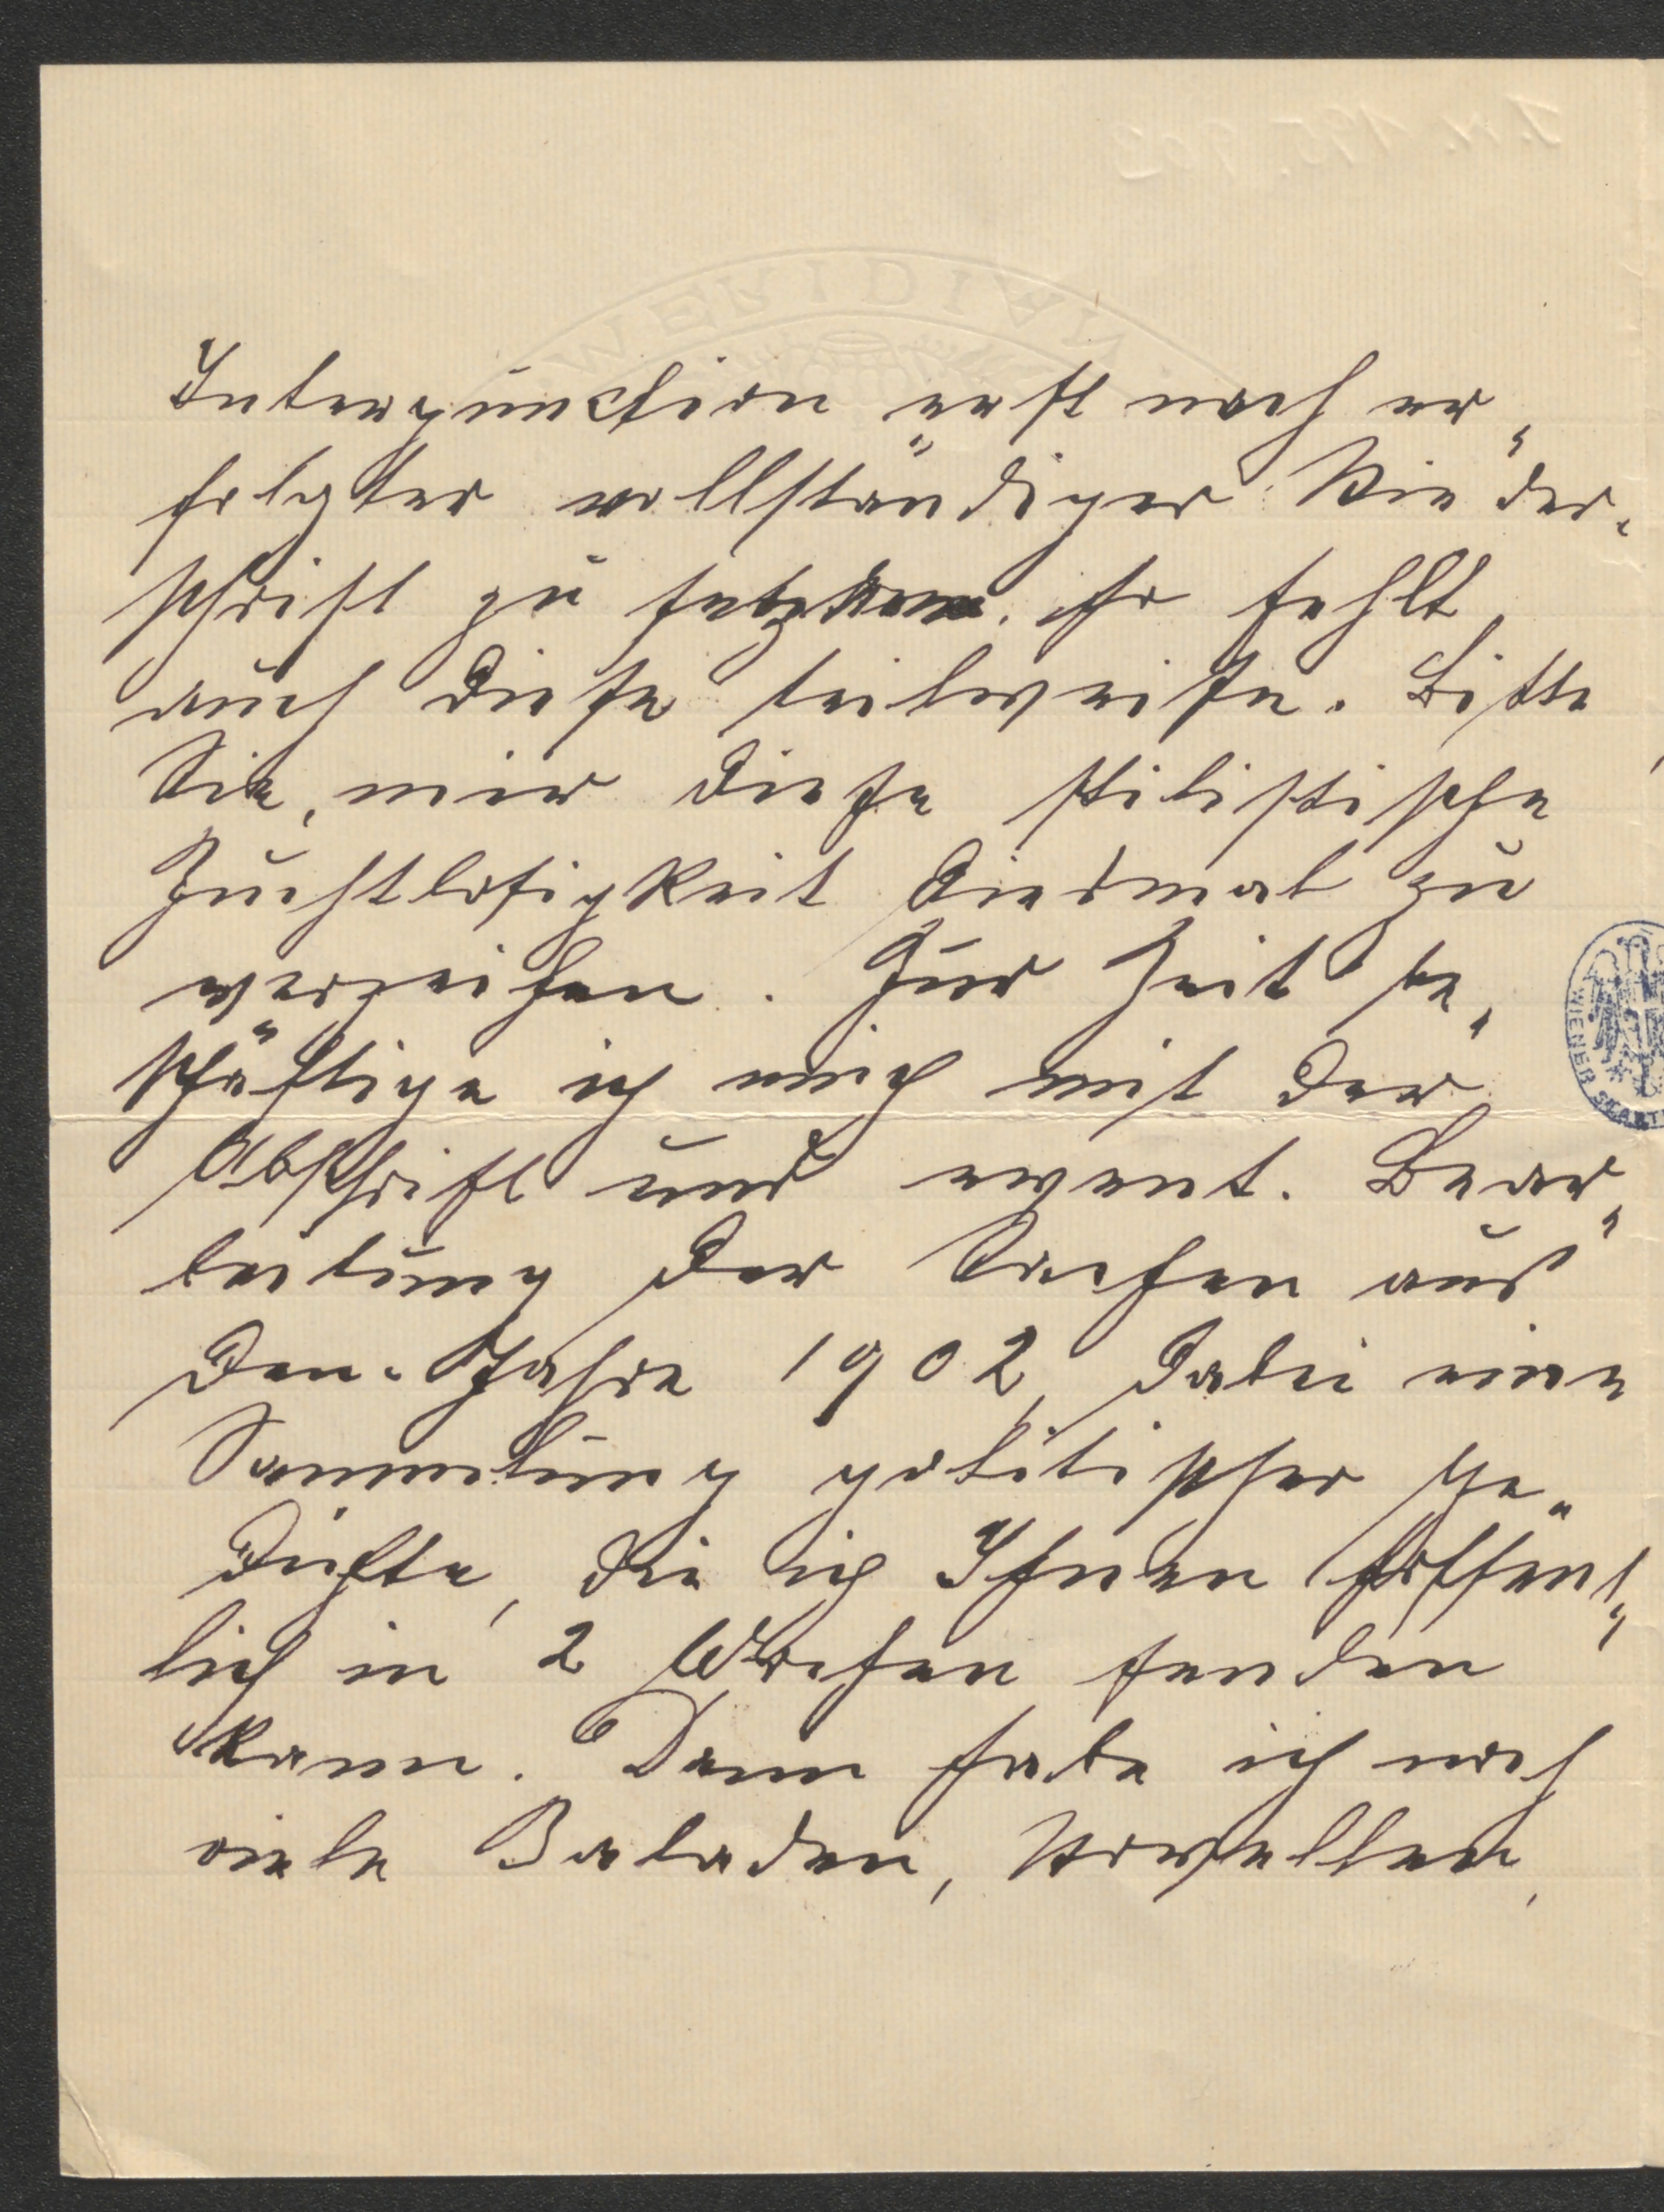 Interpunktion erst nach er„
folgter vollständiger Nieder„
schrift zu setzen. Es fehlt
auch diese teilweise. Bitte
Sie, mir diese stilistische
Zuchtlosigkeit diesmal zu
verzeihen. Zur Zeit be„
schäftige ich mich mit der
Abschrift und event. Bear„
beitung der Sachen aus
dem Jahre 1902, dabei eine
Sammlung politischer Ge„
dichte, die ich Ihnen hoffent„
lich in 2 Wochen senden
kann. Dann habe ich noch
viele Baladen, Novellen,
MERIDIAN
WIENER STADT